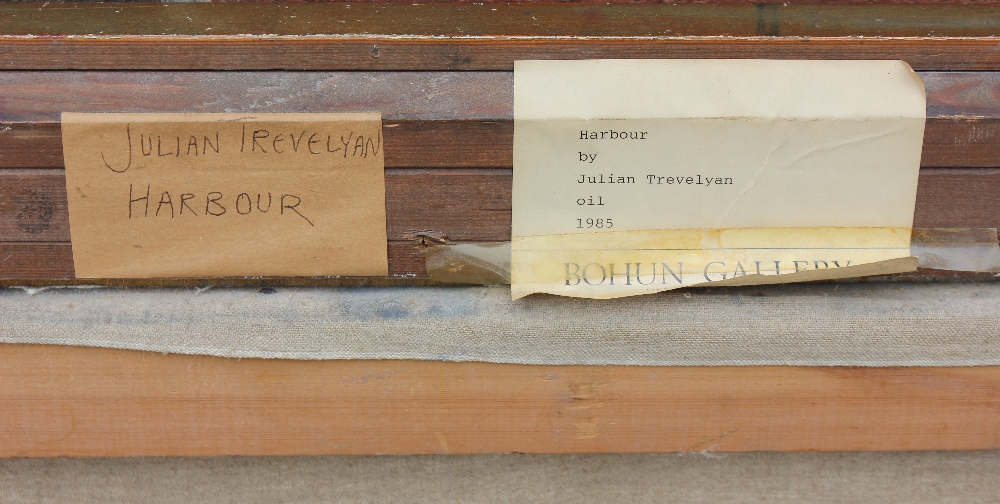 JULIAN TREVELYAN
HARBOUR
Harbour
by
Julian Trevelyan
oil
1985
BOHUN GALLERY